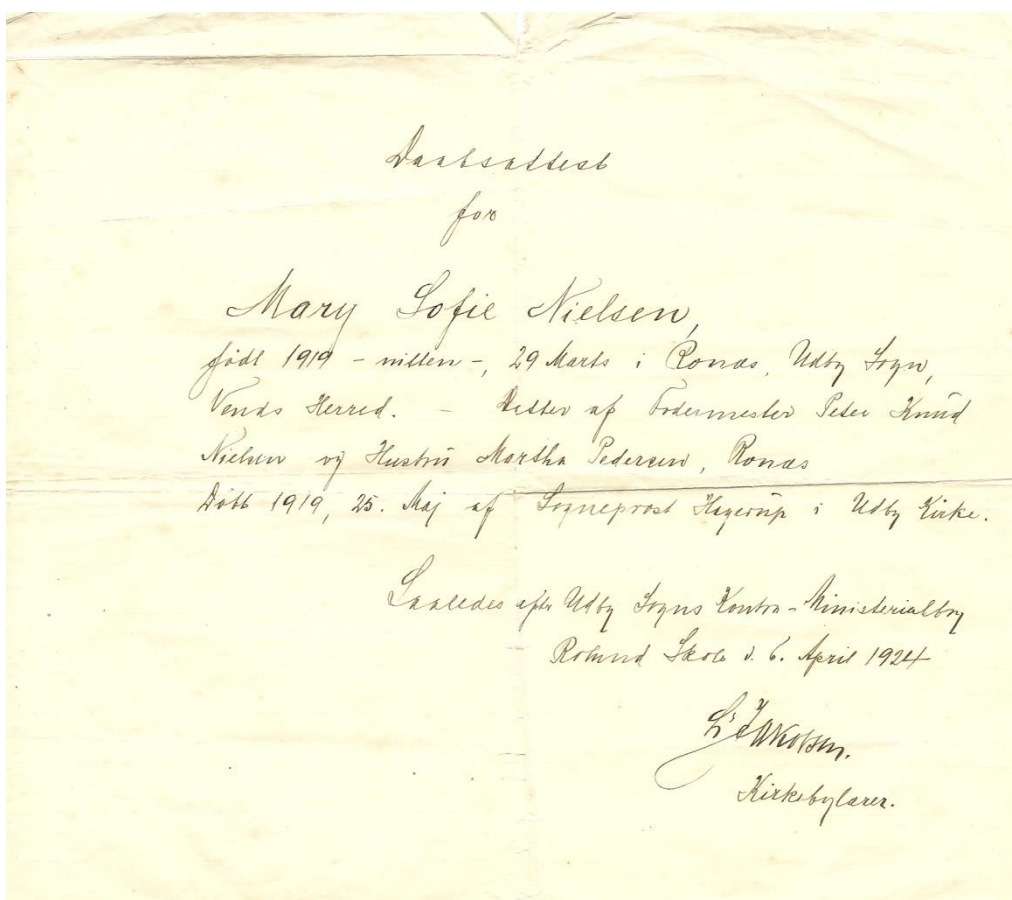 Daabsattest
for
Mary Sofie Nielsen,
født 1919 - nitten -, 29 Marts i Ronæs, Udby Sogn,
Vends Herred. - Datter af Fodermester Peter Knud
Nielsen og Hustru Martha Pedersen, Ronæs
Døbt 1919, 25. Maj af Sogneprost Hagerup i Udby Kirke.
Saaledes efter Udby Sogns Kontra-Ministerialbog
Rolund Skole d. 6. April 1924
Jakobsen.
Kirkebylærer.